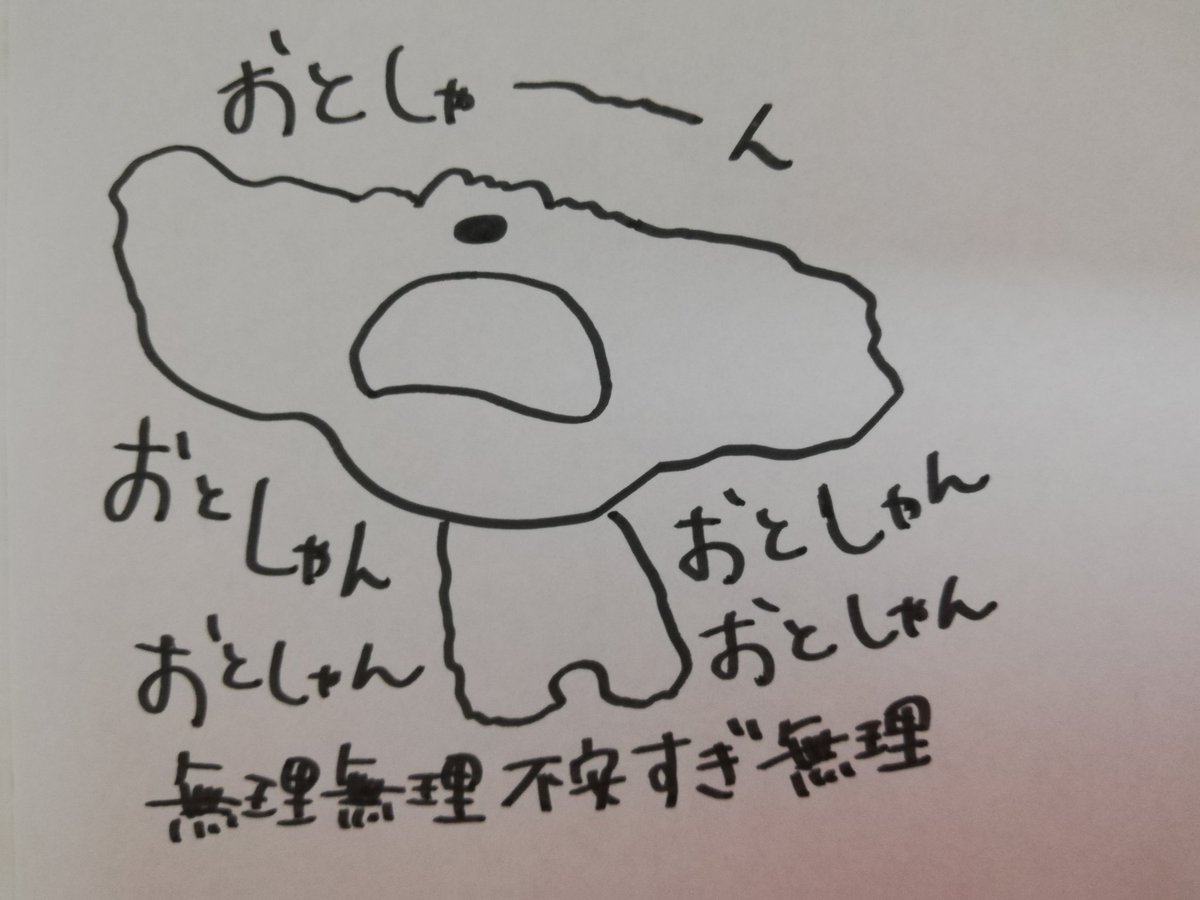 おとしゃーん
おとしゃん
おとしゃん
おとしゃん
おとしゃん
無理無理不安すぎ無理